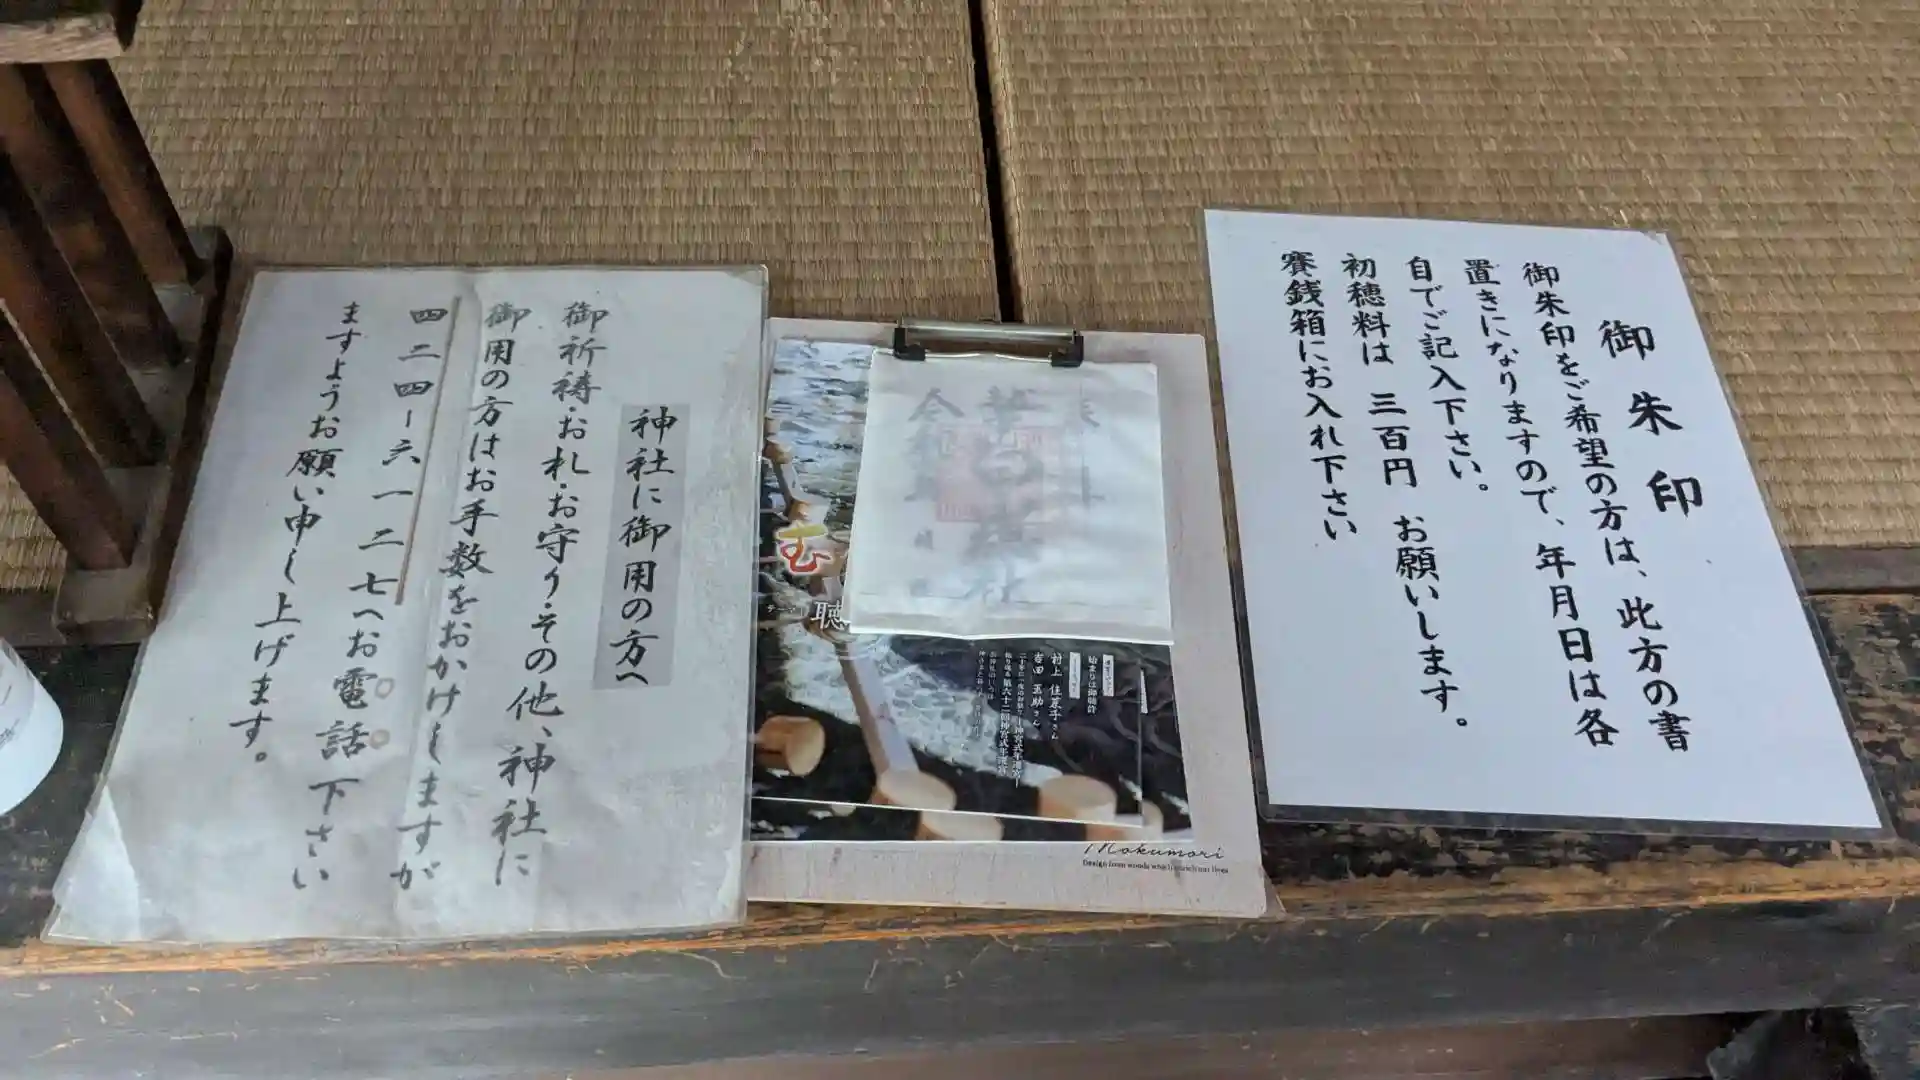 御朱印
御朱印をご希望の方は、此方の書
置きになりますので、年月日は各
自でご記入下さい。
初穂料は 三百円 お願いします。
賽銭箱にお入れ下さい
神社に御用の方へ
御祈祷・お札・お守り・その他、神社に
御用の方はお手数をおかけしますが
四二四ー六一二七へお電話下さい
ますようお願い申し上げます。
む
テーマ
聴
始まりは御勅許
村上
さん
吉田
さん
第六十二回神宮式年遷宮
Mokumori
Design from woods which enrich our lives